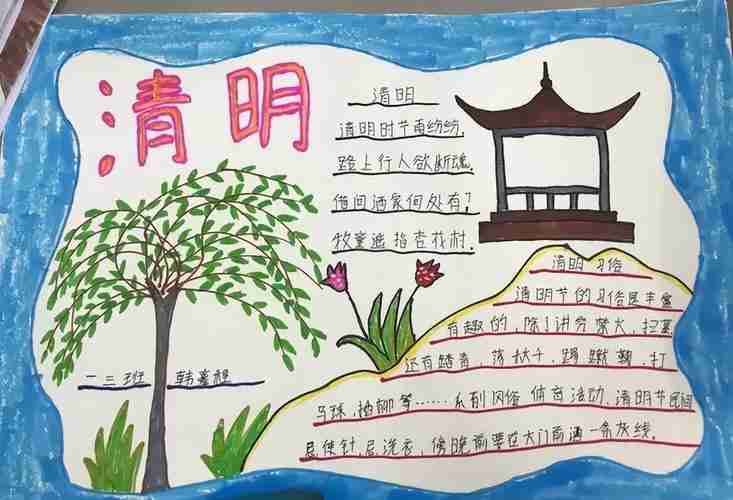 清明
清明
清明时节雨纷纷,
路上行人欲断魂.
借问洒家何处有?
牧童遥指杏花村.
清明习俗
清明节的习俗是丰富
有趣的,除了讲究禁火,扫墓
还有踏青,荡秋千,踢蹴鞠,打
马球,插柳等……系列风俗 体育活动,清明节民间
忌使针,忌洗衣,傍晚前要在大门前洒一条灰线.
一三班 韩嘉程